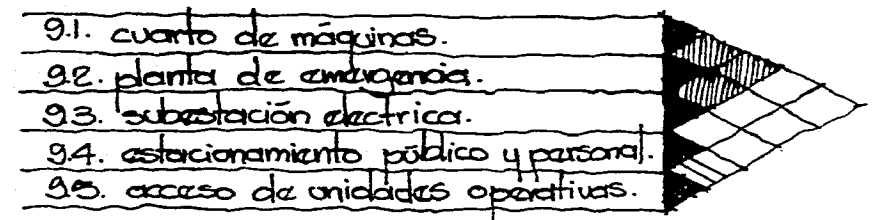 9.1. cuarto de máquinas.
9.2. planta de emergencia.
9.3. subestación electrica.
9.4. estacionamiento público y personal.
9.5. acceso de unidades operativas.